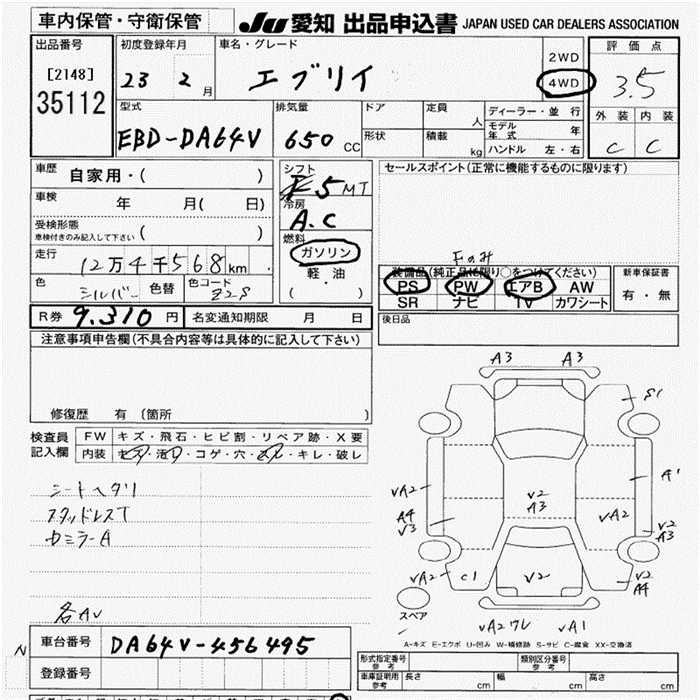 車内保管・守衛保管
JU 愛知 出品申込書 JAPAN USED CAR DEALERS ASSOCIATION
出品番号
[2148]
35112
初度登録年月
23 2 月
車名・グレード
エブリイ
2WD
4WD
評価点
3.5
外装 内装
C C
型式
EBD-DA64V
排気量
650 CC
ドア
形状
定員 人
積載 kg
ディーラー・並行
モデル年式 年
ハンドル 左・右
車歴 自家用・( )
車検 年 月( 日)
受検形態
車検付きのみ記入して下さい ( )
走行 12万4千568km
色 シルバー 色替 色コード Z2S
シフト
F5MT
冷房
A.C
燃料
ガソリン
軽・油
( ・ )
セールスポイント(正常に機能するものに限ります)
Fのみ
装備品(純正品に限り○をつけてください)
PS PW エアB AW
SR ナビ TV カワシート
新車保証書
有・無
R券 9.310 円 名変通知期限 月 日
後日品
注意事項申告欄(不具合内容等は具体的に記入して下さい)
修復歴 有 〔箇所 〕
検査員記入欄
FW キズ・飛石・ヒビ割・リペア跡・X要
内装 コゲ・穴・キレ・破レ
シートヘタリ
スタッドレスT
カミラーA
各AV
A3 A3
S1
VA2
A1
V2
A3
A4
V3
VA2
V2
A3
VA2 C1
V2
V2
A4
スペア
VA2ワレ VA1
A-キズ E-エクボ U-凹み W-補修跡 S-サビ C-腐食 XX-交換済
N
車台番号 DA64V-456495
登録番号
形式指定番号 参考
類別区分番号 参考
車庫証明用 参考 長さ cm 幅 cm 高さ cm